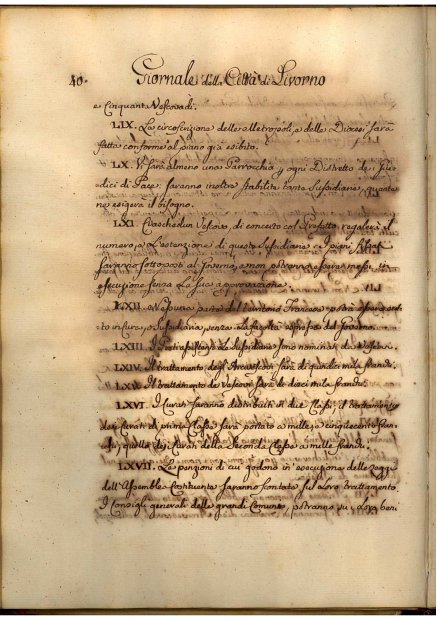 40.
Giornale della Città di Livorno
e Cinquanta Vescovadi.
LIX. La circoscrizione delle Metropoli, e delle Diocesi sarà
fatta conforme al piano già esibito.
LX. Vi sarà almeno una Parrocchia ogni Distretto de' Giu-
dici di Pace; saranno inoltre stabilite tante Sussidiarie, quante
ne esigerà il bisogno.
LXI. Ciaschedun Vescovo, di concerto col Prefetto regolerà il
numero, e l'estenzione di queste Sussidiarie. I piani fissati
saranno sottoposti al Governo, e non potranno messi in
esecuzione senza la sua approvazione.
LXII. Nessuna parte del territorio Francese potrà
in Cura, o Sussidiaria senza la facoltà espressa del Governo.
LXIII. I Preti le Sussidiarie sono nominati da' Vescovi.
LXIV. Il trattamento degl'Arcivescovi sarà di quindici mila franchi.
LXV. Il trattamento de' Vescovi sarà di dieci mila franchi.
LXVI. I Curati saranno distribuiti in due Classi; il trattamento
dei Curati di prima Classe sarà portato a mille, e cinquecento fran-
chi; quello dei Curati della seconda Classe a mille franchi.
LXVII. Le penzioni di cui godono in esecuzione delle Leggi
dell'Assemblea Costituente saranno contate sul loro trattamento.
I Consigli generali delle grandi Comuni, potranno su i loro beni